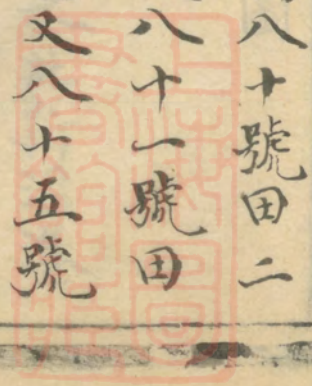 八十號田二
八十一號田
又八十五號